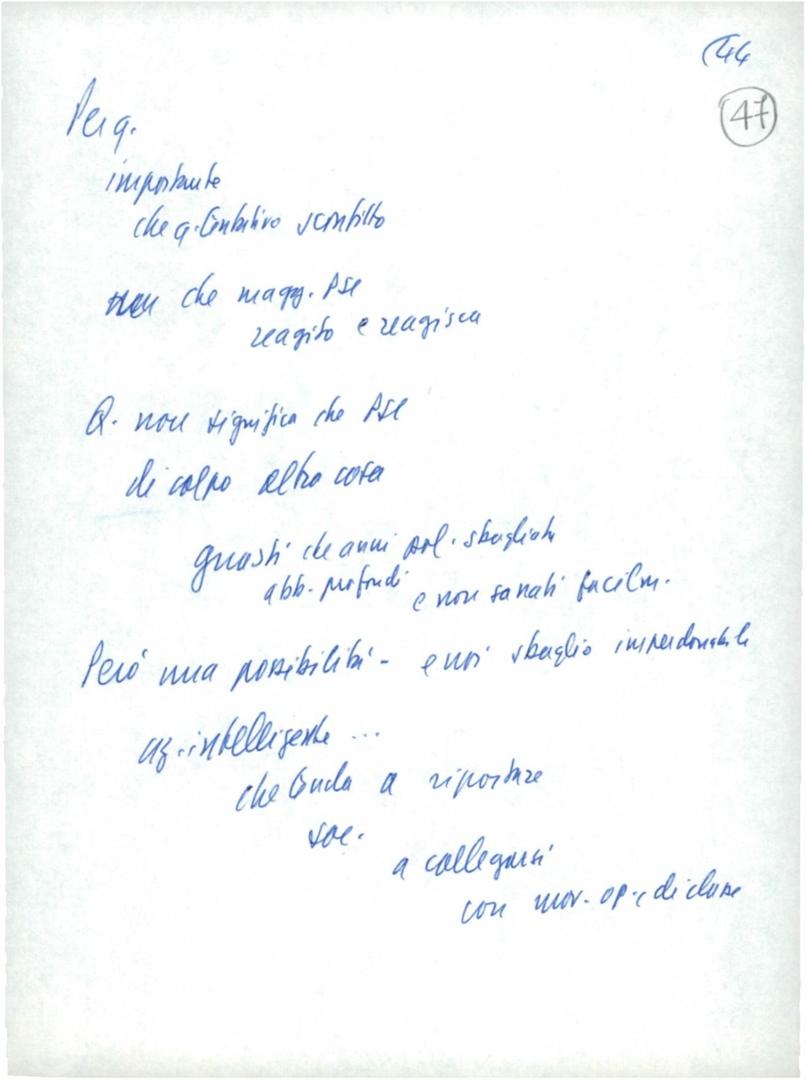 (44
47
Per q.
importante
che q. tentativo sconfitto
che magg. PSI
reagito e reagisca
Q. non significa che PSI
di colpo altra cosa
guasti che anni pol. sbagliata
abb. profondi e non sanati facilm.
Però una possibilità - e noi sbaglio imperdonabile
az. intelligente ...
che tenda a riportare
soc.
a collegarsi
con mov. op. e di classe